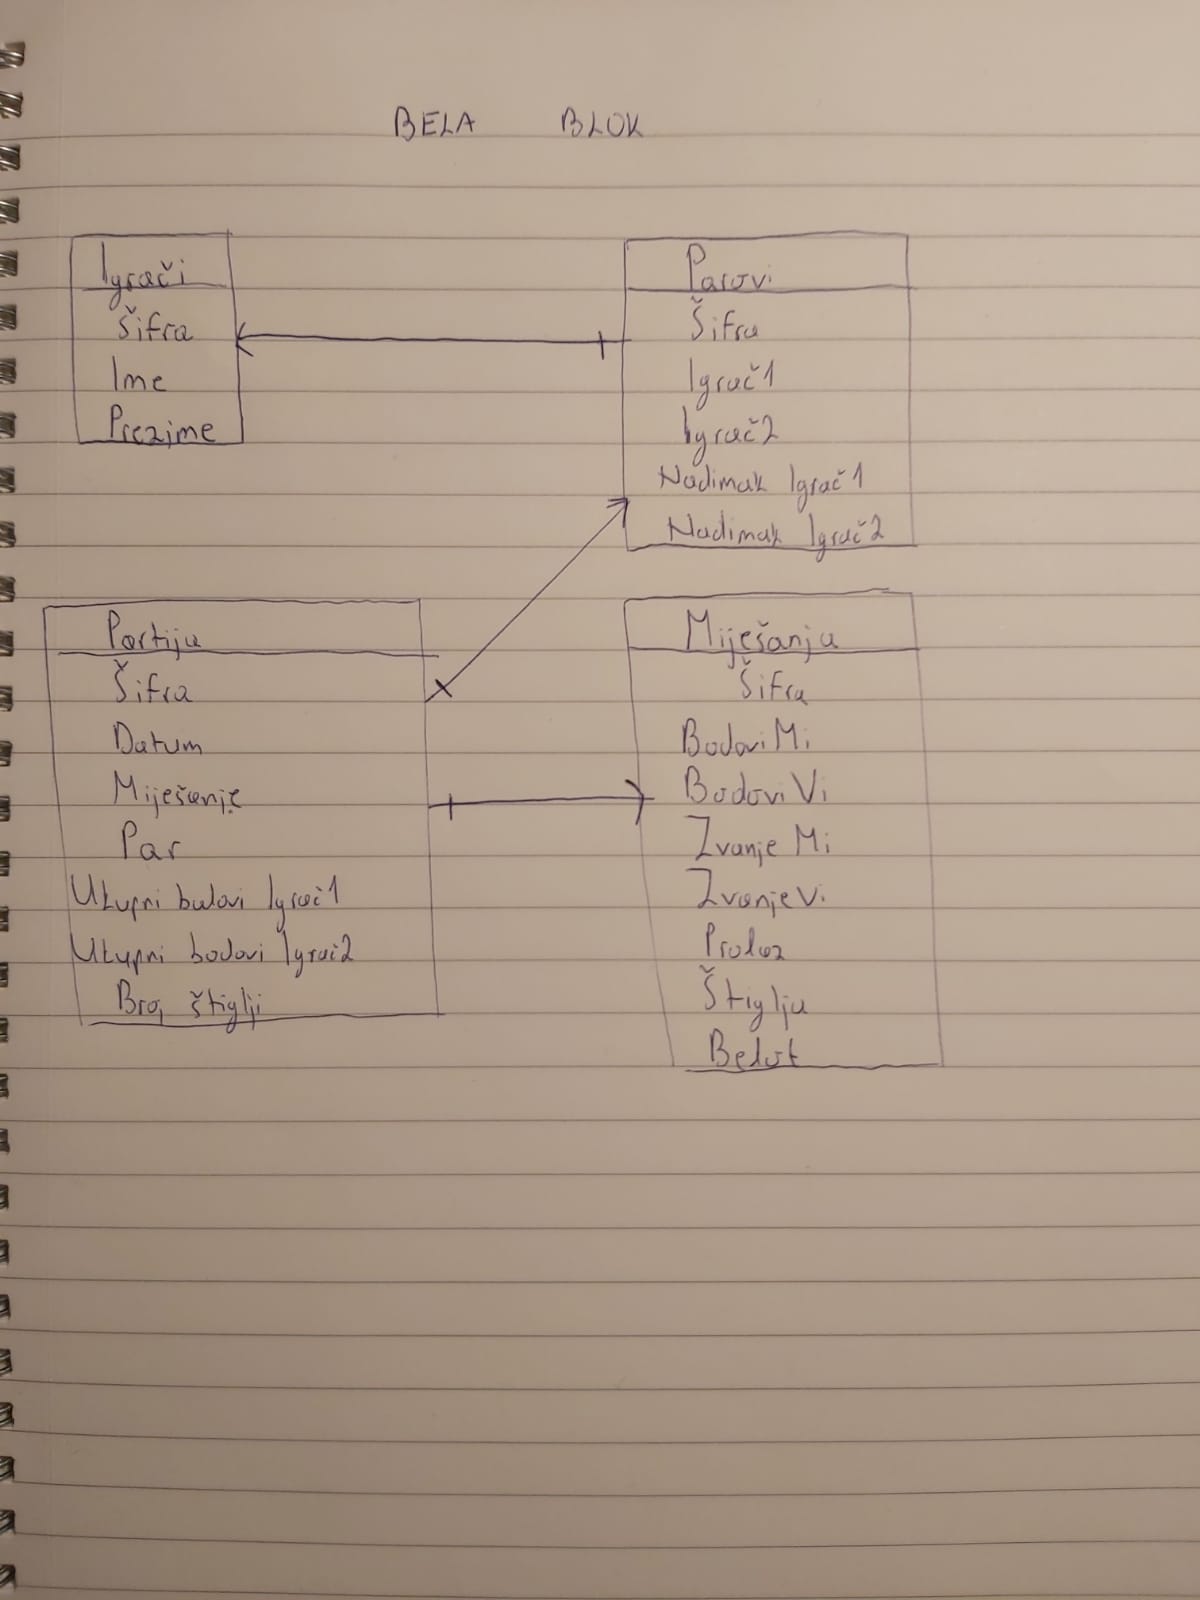 BELA BLOK
Igrači
Šifra
Ime
Prezime
Parovi
Šifra
Igrač1
Igrač2
Nadimak Igrač1
Nadimak Igrač2
Partija
Šifra
Datum
Miješanje
Par
Ukupni bodovi Igrač1
Ukupni bodovi Igrač2
Broj štiglji
Miješanja
Šifra
Bodovi Mi
Bodovi Vi
Zvanje Mi
Zvanje Vi
Prolaz
Štiglja
Belot